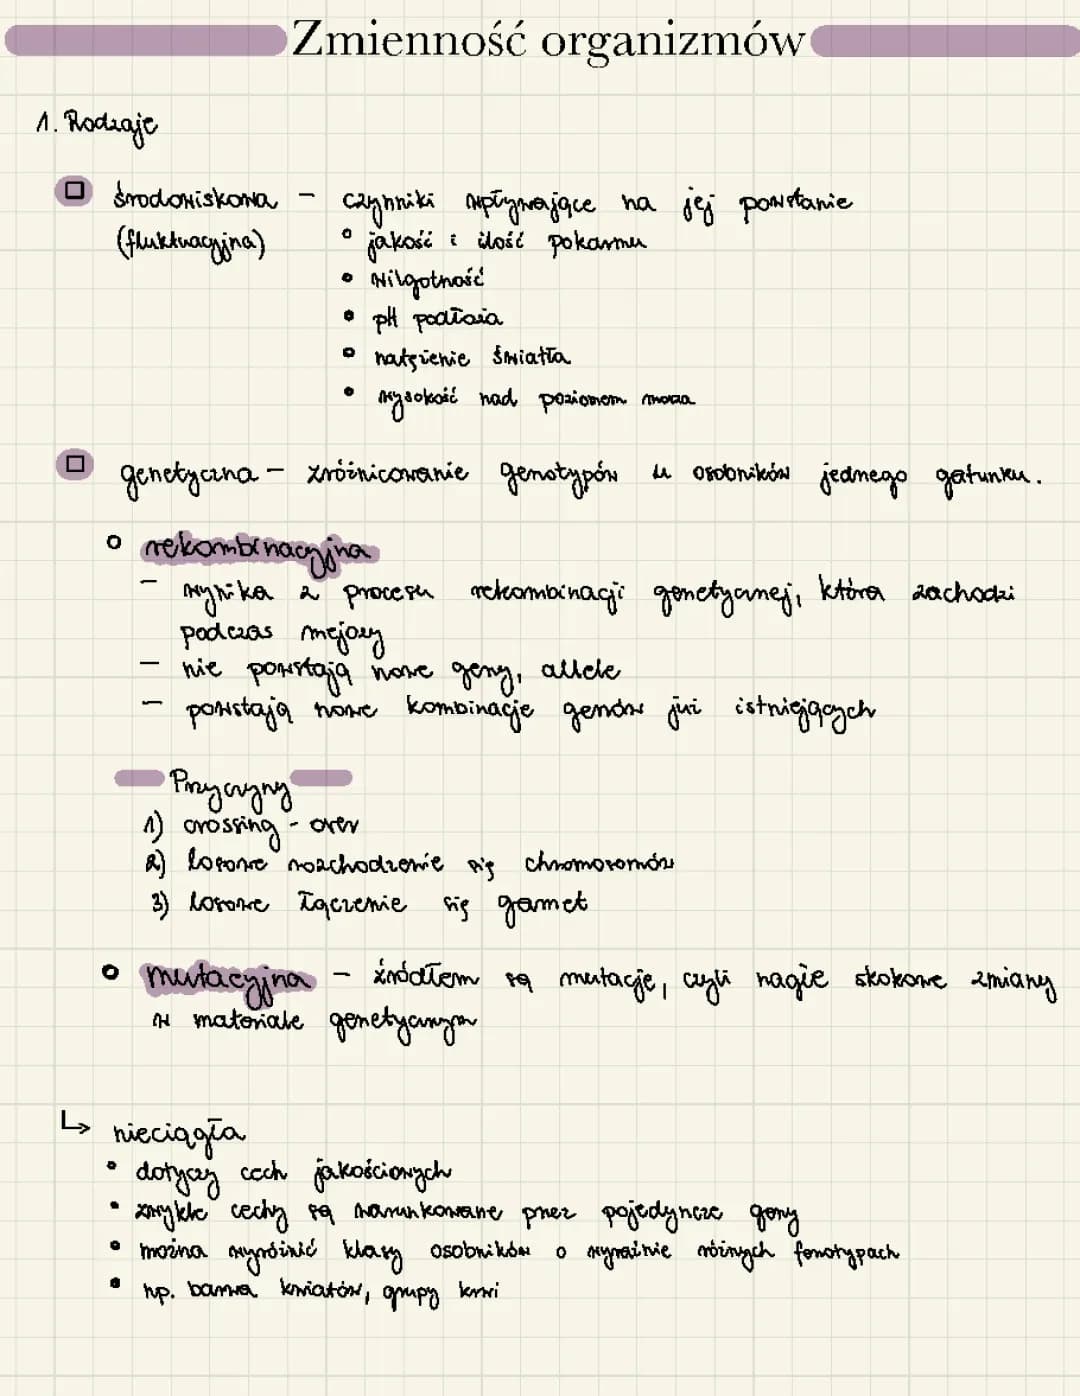 Zmienność organizmów
1. Rodzaje
środowiskowa - czynniki wpływające na jej powstanie
(fluktuacyjna)
jakość i ilość pokarmu
wilgotność
pH podłoża
natężenie światła
wysokość nad poziomem morza
genetyczna - zróżnicowanie genotypów u osobników jednego gatunku.
rekombinacyjna
- wynika z procesu rekombinacji genetycznej, która zachodzi
podczas mejozy
- nie powstają nowe geny, allele
- powstają nowe kombinacje genów już istniejących
Przyczyny
1) crossing-over
2) losowe rozchodzenie się chromosomów
3) losowe łączenie się gamet
mutacyjna - źródłem są mutacje, czyli nagłe skokowe zmiany
w materiale genetycznym
↳ nieciągła
• dotyczy cech jakościowych
• zwykle cechy są warunkowane przez pojedyncze geny
• można wyróżnić klasy osobników o wyraźnie różnych fenotypach
• np. barwa kwiatów, grupy krwi